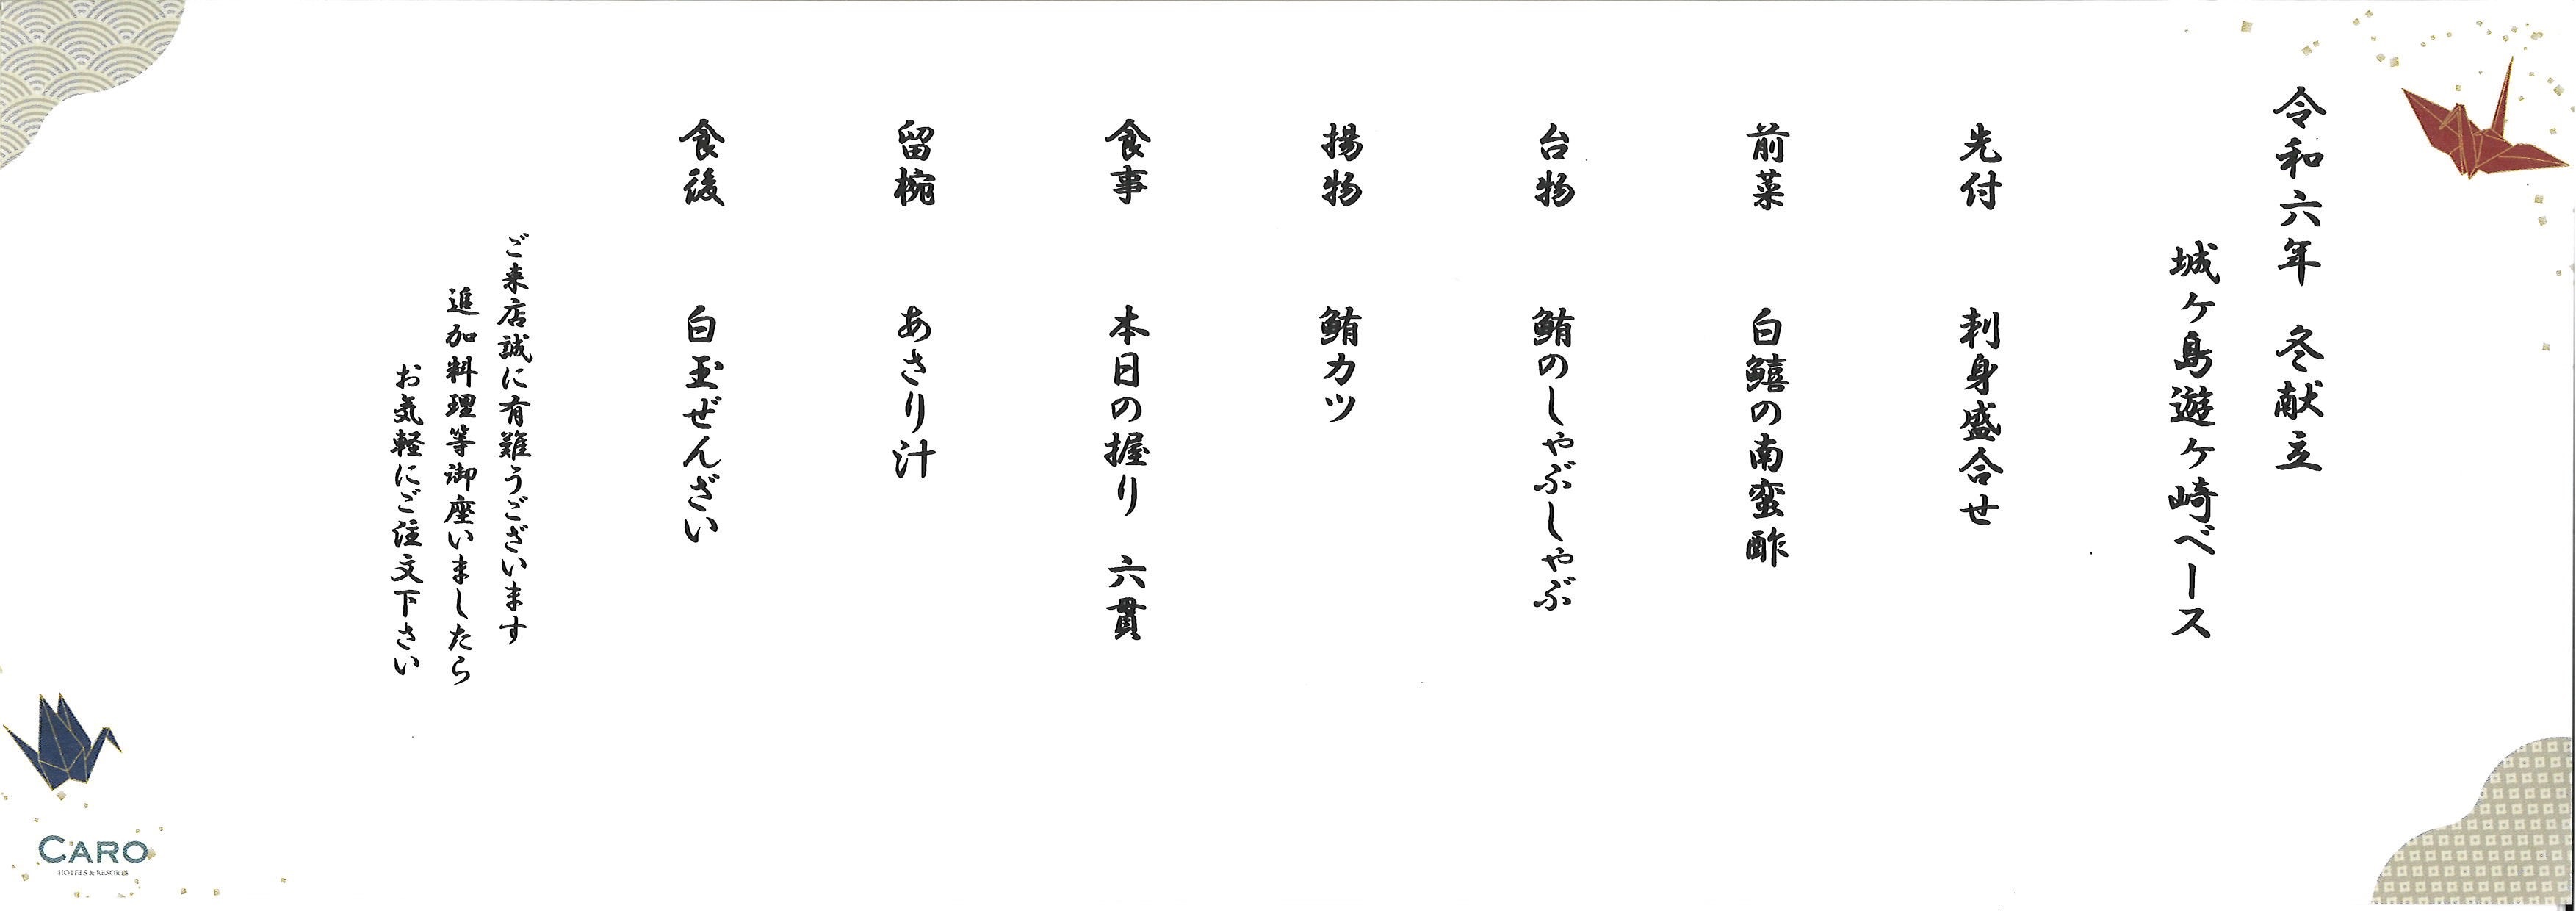 令和六年　冬献立
城ケ島遊ケ崎ベース
先付　刺身盛合せ
前菜　白鱚の南蛮酢
台物　鮪のしゃぶしゃぶ
揚物　鮪カツ
食事　本日の握り　六貫
留椀　あさり汁
食後　白玉ぜんざい
ご来店誠に有難うございます
追加料理等御座いましたら
お気軽にご注文下さい
CARO
HOTELS & RESORTS